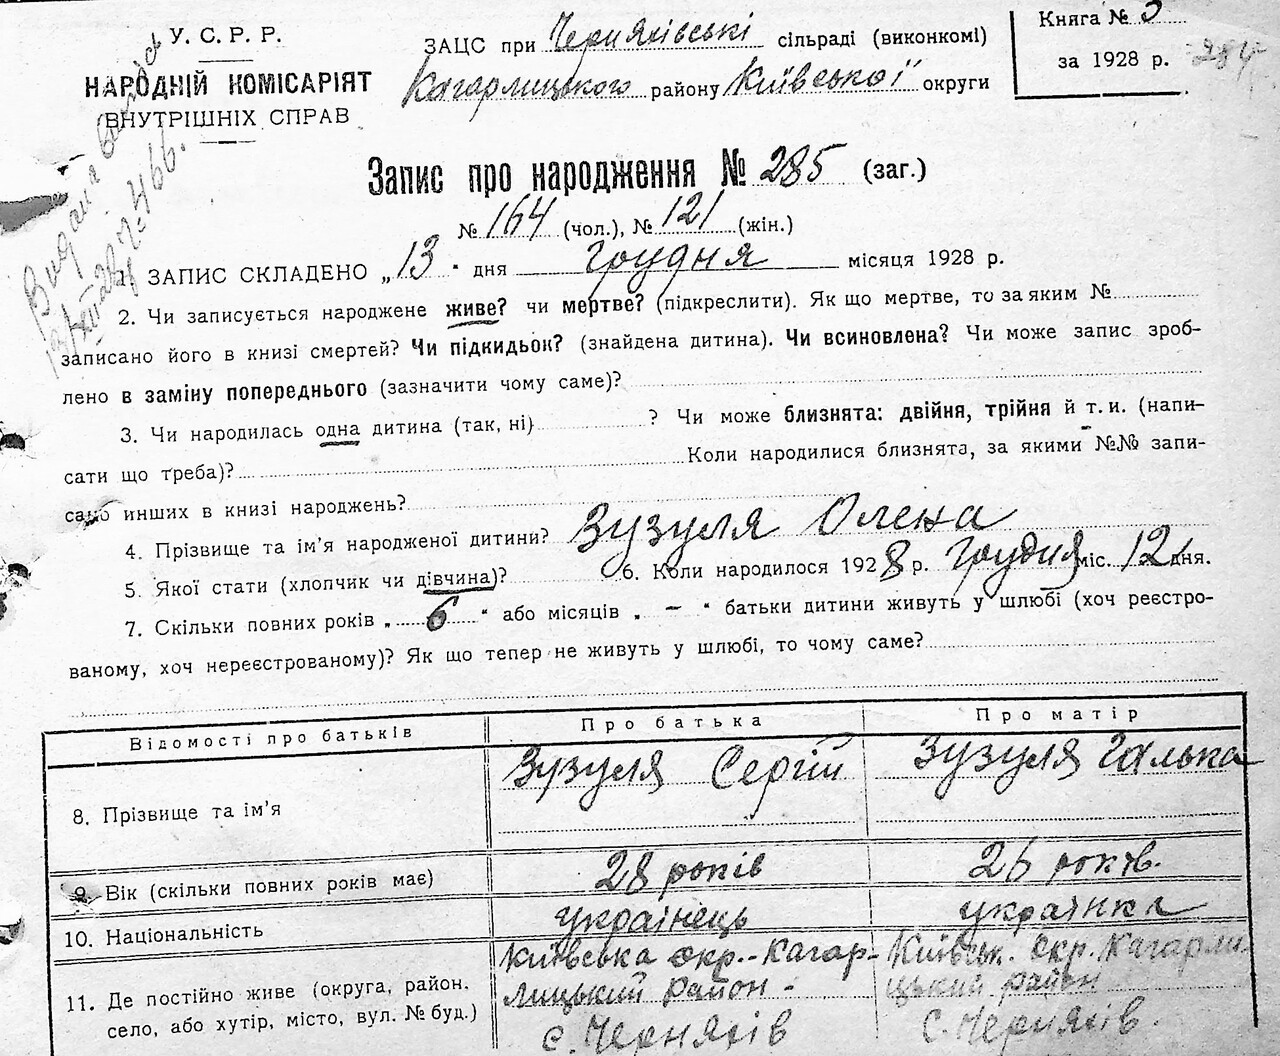 У. С. Р. Р.
НАРОДНІЙ КОМІСАРІЯТ
ВНУТРІШНІХ СПРАВ
ЗАЦС при Черняхівські сільраді (виконкомі)
Кагарлицького району Київської округи
Книга № 3
за 1928 р. 284
Видана
№ 466.
Запис про народження № 285 (заг.)
№ 164 (чол.), № 121 (жін.)
1. ЗАПИС СКЛАДЕНО „13" дня грудня місяця 1928 р.
2. Чи записується народжене живе? чи мертве? (підкреслити). Як що мертве, то за яким №
записано його в книзі смертей? Чи підкидьок? (знайдена дитина). Чи всиновлена? Чи може запис зроб-
лено в заміну попереднього (зазначити чому саме)?
3. Чи народилась одна дитина (так, ні) ? Чи може близнята: двійня, трійня й т. и. (напи-
сати що треба)? Коли народилися близнята, за якими №№ запи-
сано инших в книзі народжень?
4. Прізвище та ім'я народженої дитини? Зузуля Олена
5. Якої стати (хлопчик чи дівчина)? 6. Коли народилося 1928 р. грудня міс. 12 дня.
7. Скільки повних років „ 6 " або місяців „ — " батьки дитини живуть у шлюбі (хоч реєстро-
ваному, хоч нереєстрованому)? Як що тепер не живуть у шлюбі, то чому саме?
Відомості про батьків Про батька Про матір
8. Прізвище та ім'я Зузуля Сергій Зузуля Галька
9. Вік (скільки повних років має) 28 років 26 років.
10. Національність українець українка
11. Де постійно живе (округа, район. Київська окр.-Кагар- Київськ. окр. Кагарли-
село, або хутір, місто, вул. № буд.) лицький район - цький район
с. Черняхів с. Черняхів.